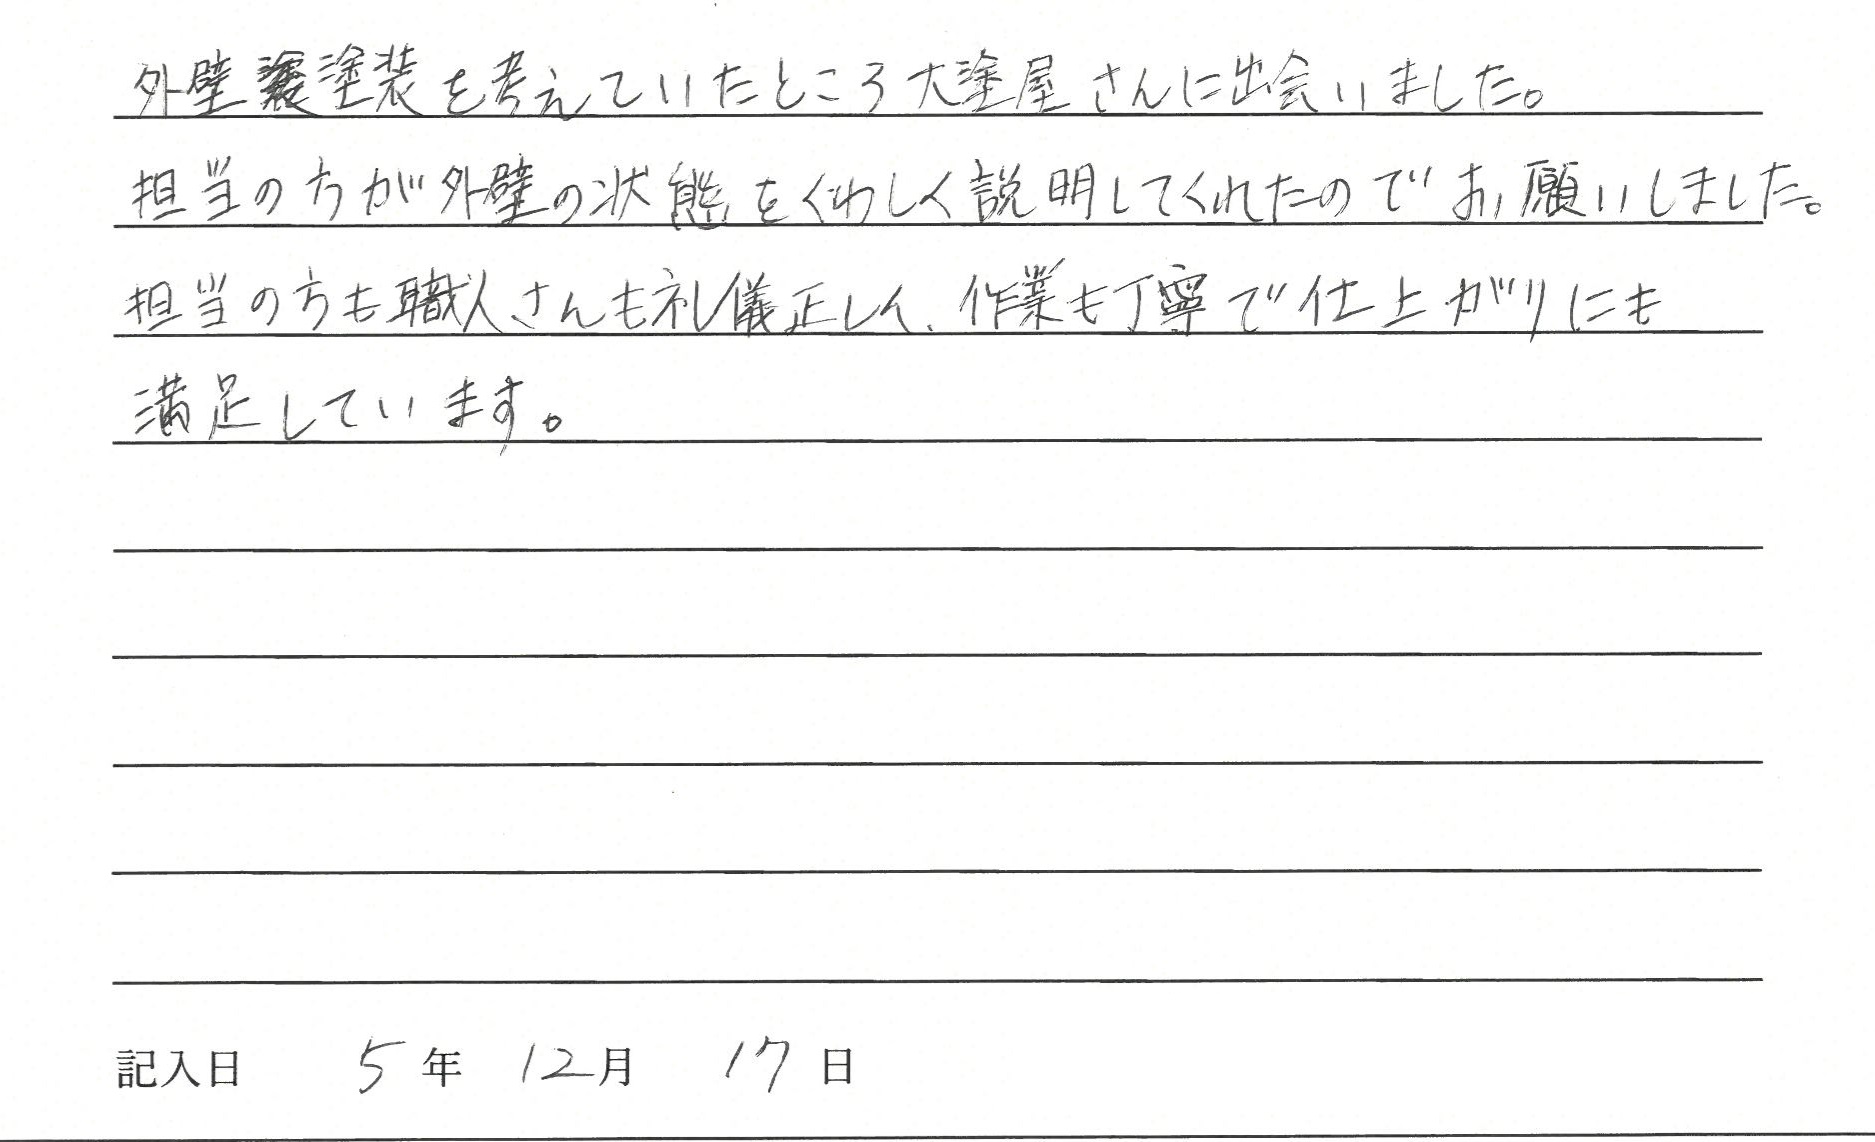 外壁塗装を考えていたところ大塗屋さんに出会いました。
担当の方が外壁の状態をくわしく説明してくれたのでお願いしました。
担当の方も職人さんも礼儀正しく、作業も丁寧で仕上がりにも
満足しています。
記入日 5年 12月 17日